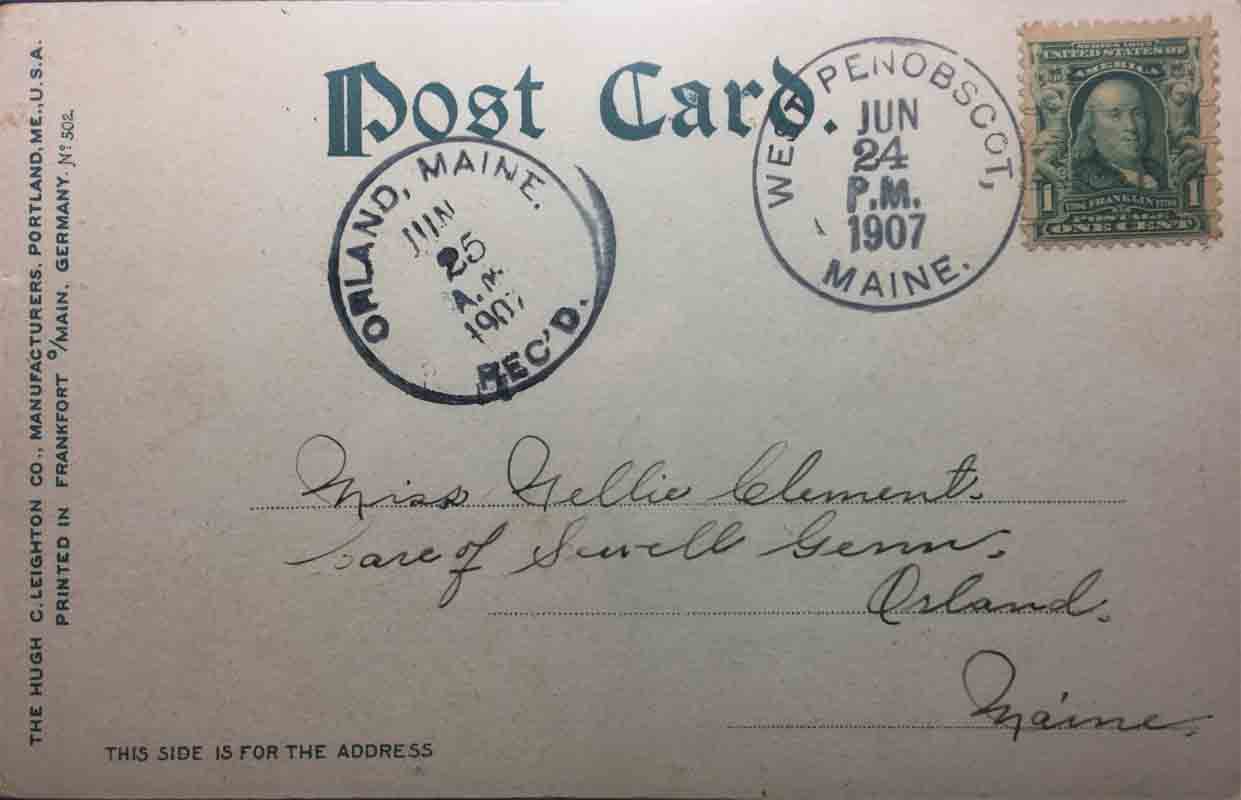 Post Card.
WEST PENOBSCOT,
JUN
24
P.M.
1907
MAINE.
SERIES 1902
UNITED STATES OF
AMERICA
1 FRANKLIN 1
POSTAGE
ONE CENT
ORLAND, MAINE.
JUN
25
A.M.
1907
REC'D.
Miss Nellie Clement.
Care of Sewell Genn.
Orland.
Maine.
THIS SIDE IS FOR THE ADDRESS
THE HUGH C. LEIGHTON CO., MANUFACTURERS, PORTLAND, ME., U.S.A.
PRINTED IN FRANKFORT o/MAIN, GERMANY. No 502